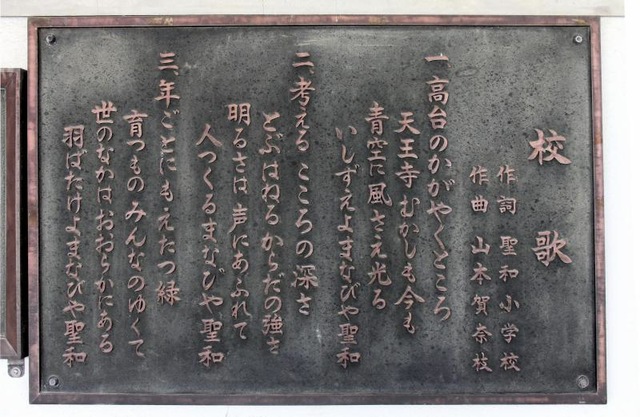 校歌
作詞 聖和小学校
作曲 山本賀奈枝
一、高台のかがやくところ
天王寺むかしも今も
青空に風さえ光る
いしずえよまなびや聖和
二、考える こころの深さ
とぶはねる からだの強さ
明るさは 声にあふれて
人つくるまなびや聖和
三、年ごとに もえたつ緑
育つもの みんなのゆくて
世のなかは おおらかにある
羽ばたけよまなびや聖和